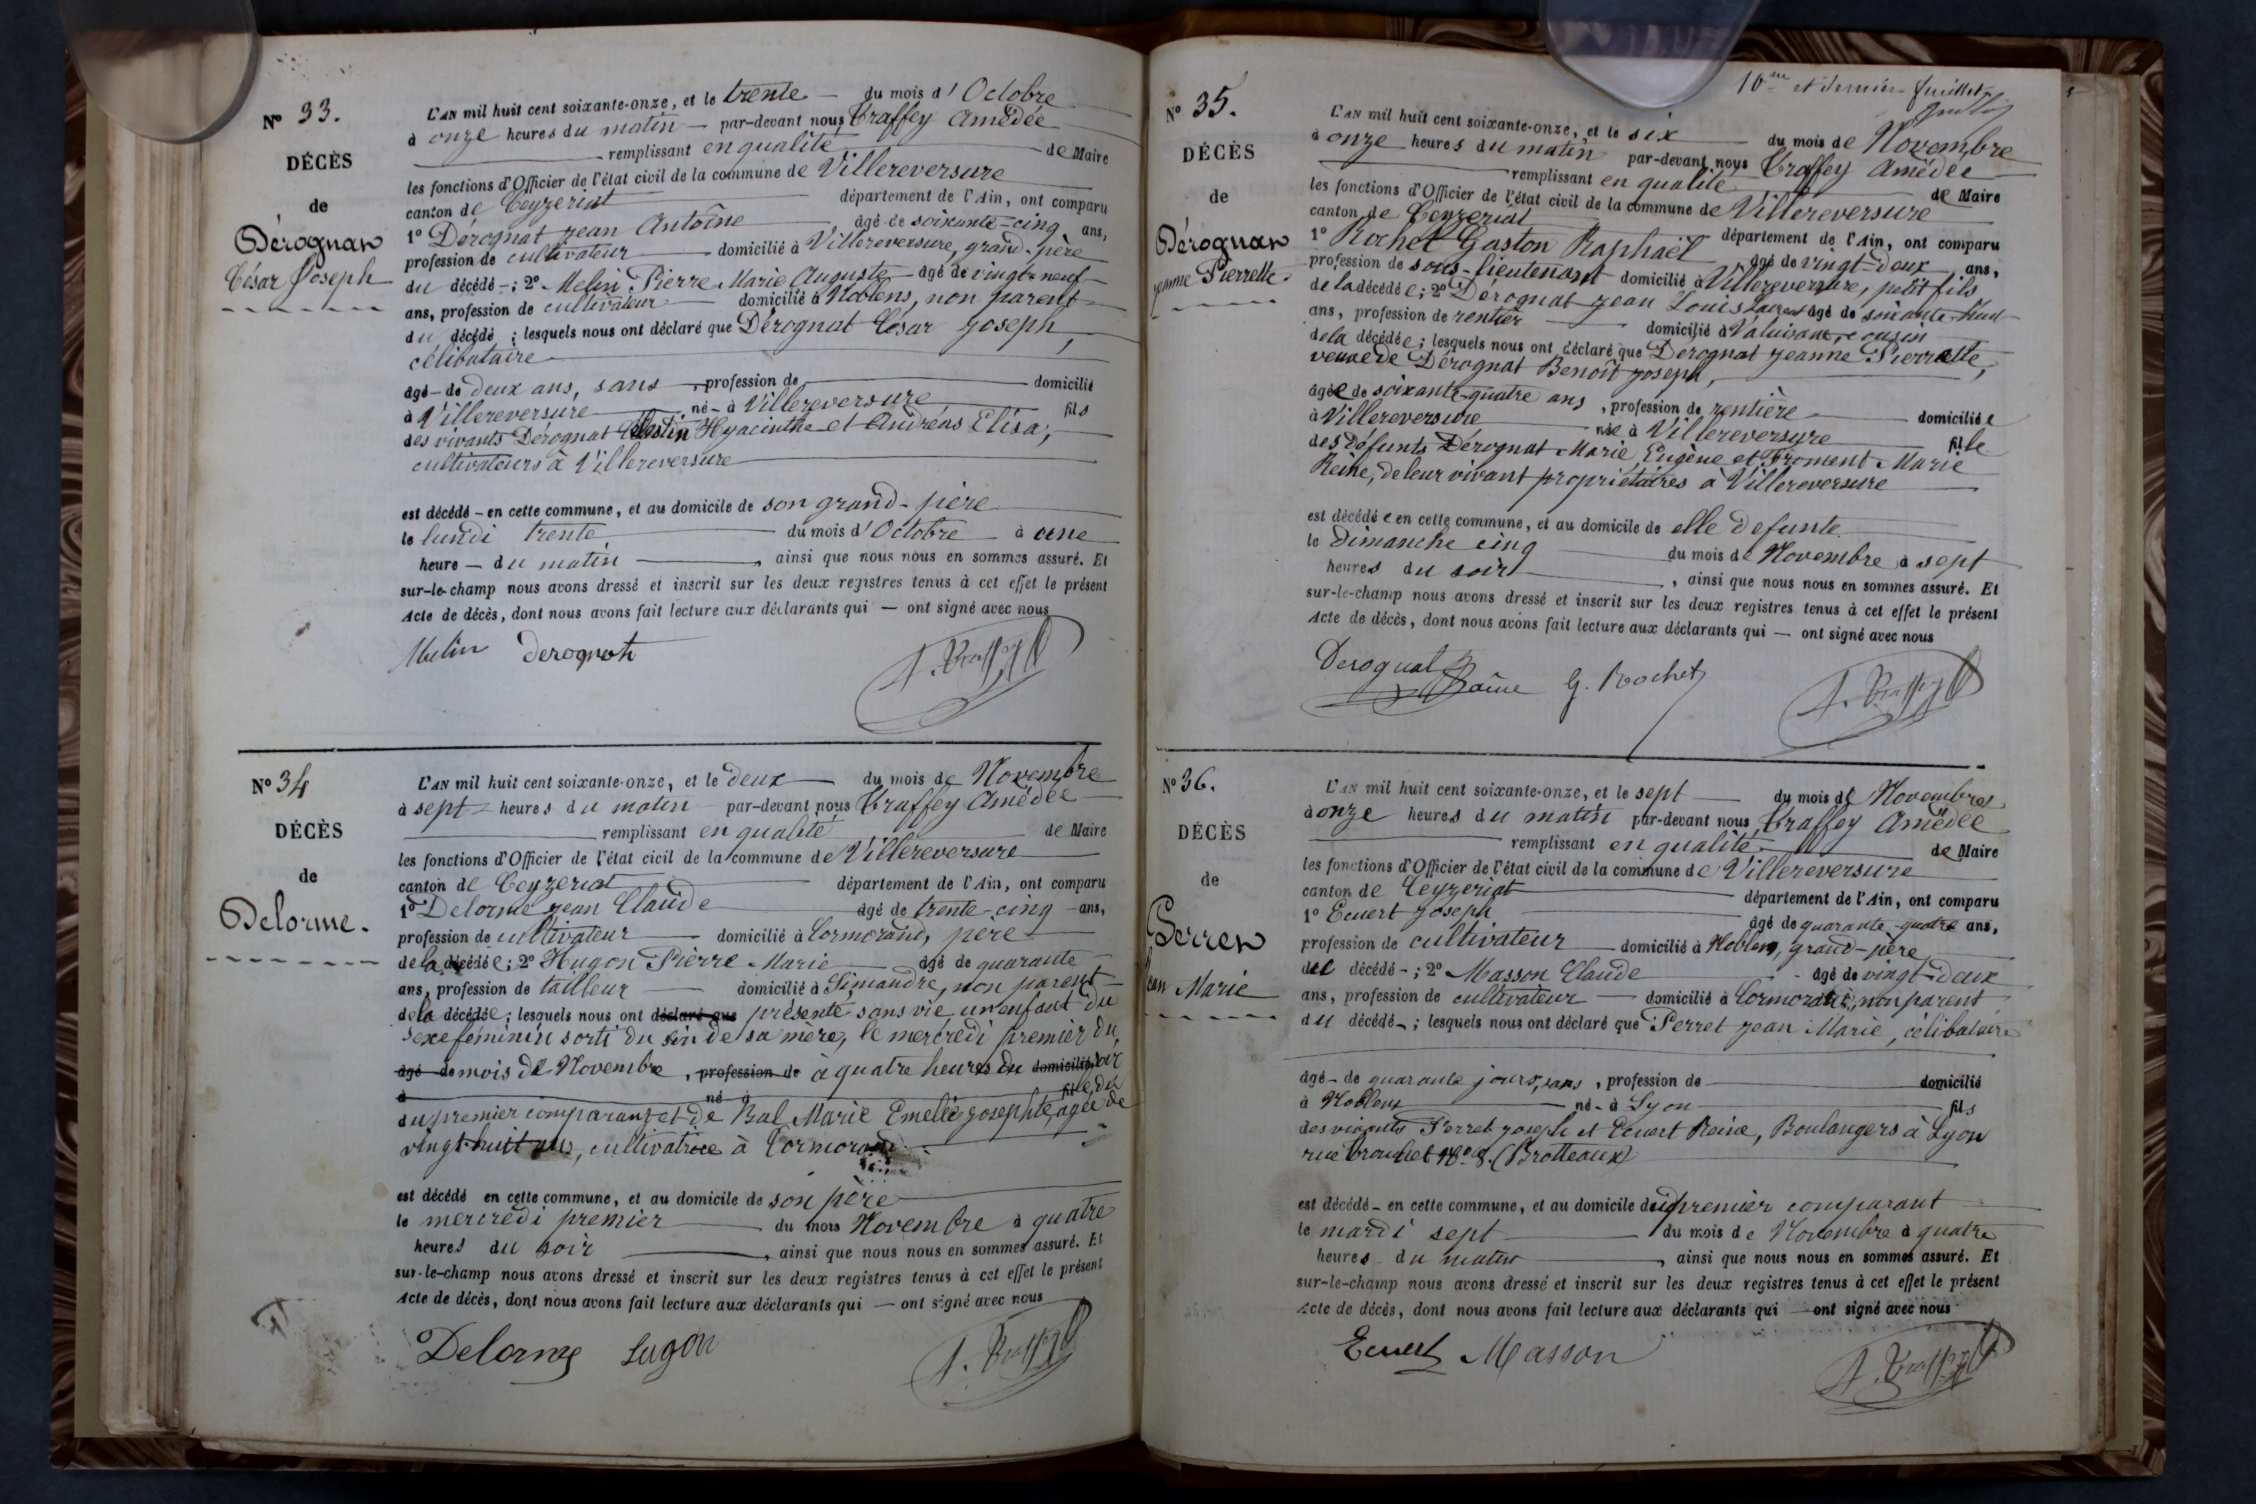 N° 33.
DÉCÈS
de
Dérognat
César Joseph
L'AN mil huit cent soixante-onze, et le trente du mois d'Octobre
à onze heures du matin par-devant nous Traffey Amédée
remplissant en qualité de Maire
les fonctions d'Officier de l'état civil de la commune de Villereversure
canton de Ceyzeriat département de l'Ain, ont comparu
1° Dérognat Jean Antoine âgé de soixante-cinq ans,
profession de cultivateur domicilié à Villereversure, grand-père
du décédé ; 2° Melin Pierre Marie Auguste âgé de vingt-neuf
ans, profession de cultivateur domicilié à Noblens, non parent
du décédé ; lesquels nous ont déclaré que Dérognat César Joseph,
célibataire
âgé de deux ans, sans , profession de domicilié
à Villereversure né à Villereversure fils
des vivants Dérognat Hyacinthe et Andréas Elisa,
cultivateurs à Villereversure
est décédé en cette commune, et au domicile de son grand-père
le lundi trente du mois d'Octobre à une
heure du matin , ainsi que nous nous en sommes assuré. Et
sur-le-champ nous avons dressé et inscrit sur les deux registres tenus à cet effet le présent
Acte de décès, dont nous avons fait lecture aux déclarants qui — ont signé avec nous
Melin derognat A. Traffey
N° 34
DÉCÈS
de
Delorme.
L'AN mil huit cent soixante-onze, et le deux du mois de Novembre
à sept heures du matin par-devant nous Traffey Amédée
remplissant en qualité de Maire
les fonctions d'Officier de l'état civil de la commune de Villereversure
canton de Ceyzeriat département de l'Ain, ont comparu
1° Delorme Jean Claude âgé de trente-cinq ans,
profession de cultivateur domicilié à Cormorand, père
de la décédée ; 2° Hugon Pierre Marie âgé de quarante
ans, profession de tailleur domicilié à Simandre, non parent
de la décédée ; lesquels nous ont déclaré que présenté sans vie un enfant du
sexe féminin sorti du sein de sa mère, le mercredi premier du
âgé de mois de Novembre , profession de à quatre heures du domicilié soir
à né à fille du
du premier comparant et de Bal Marie Emelie Josephte, agée de
vingt-huit ans, cultivatrice à Cormorand
est décédé en cette commune, et au domicile de son père
le mercredi premier du mois Novembre à quatre
heures du soir , ainsi que nous nous en sommes assuré. Et
sur-le-champ nous avons dressé et inscrit sur les deux registres tenus à cet effet le présent
Acte de décès, dont nous avons fait lecture aux déclarants qui — ont signé avec nous
Delorme hugon A. Traffey
10me et dernier feuillet
N° 35.
DÉCÈS
de
Dérognat
Jeanne Pierrette.
L'AN mil huit cent soixante-onze, et le six du mois de Novembre
à onze heures du matin par-devant nous Traffey Amédée
remplissant en qualité de Maire
les fonctions d'Officier de l'état civil de la commune de Villereversure
canton de Ceyzeriat département de l'Ain, ont comparu
1° Rochet Gaston Raphaël âgé de vingt-deux ans,
profession de sous-lieutenant domicilié à Villereversure, petit fils
de la décédée ; 2° Dérognat Jean Louis âgé de soixante-huit
ans, profession de rentier domicilié à cousin
de la décédée ; lesquels nous ont déclaré que Dérognat Jeanne Pierrette,
veuve de Dérognat Benoît Joseph,
âgée de soixante-quatre ans , profession de rentière domiciliée
à Villereversure née à Villereversure fille
des défunts Dérognat Marie Eugène et Froment Marie
Reine, de leur vivant propriétaires à Villereversure
est décédée en cette commune, et au domicile de elle defunte
le dimanche cinq du mois de Novembre à sept
heures du soir , ainsi que nous nous en sommes assuré. Et
sur-le-champ nous avons dressé et inscrit sur les deux registres tenus à cet effet le présent
Acte de décès, dont nous avons fait lecture aux déclarants qui — ont signé avec nous
Derognat G. Rochet A. Traffey
N° 36.
DÉCÈS
de
Perret
Jean Marie
L'AN mil huit cent soixante-onze, et le sept du mois de Novembre
à onze heures du matin par-devant nous Traffey Amédée
remplissant en qualité de Maire
les fonctions d'Officier de l'état civil de la commune de Villereversure
canton de Ceyzeriat département de l'Ain, ont comparu
1° Ecuert Joseph âgé de quarante-quatre ans,
profession de cultivateur domicilié à Noblens, grand-père
du décédé ; 2° Masson Claude âgé de vingt-deux
ans, profession de cultivateur domicilié à Cormorand, non parent
du décédé ; lesquels nous ont déclaré que Perret Jean Marie, célibataire
âgé de quarante jours, sans , profession de domicilié
à Noblens né à Lyon fils
des vivants Perret Joseph et Ecuert Reine, Boulangers à Lyon
rue Tronchet N° 8. (Brotteaux)
est décédé en cette commune, et au domicile du premier comparant
le mardi sept du mois de Novembre à quatre
heures du matin , ainsi que nous nous en sommes assuré. Et
sur-le-champ nous avons dressé et inscrit sur les deux registres tenus à cet effet le présent
Acte de décès, dont nous avons fait lecture aux déclarants qui — ont signé avec nous
Ecuert Masson A. Traffey